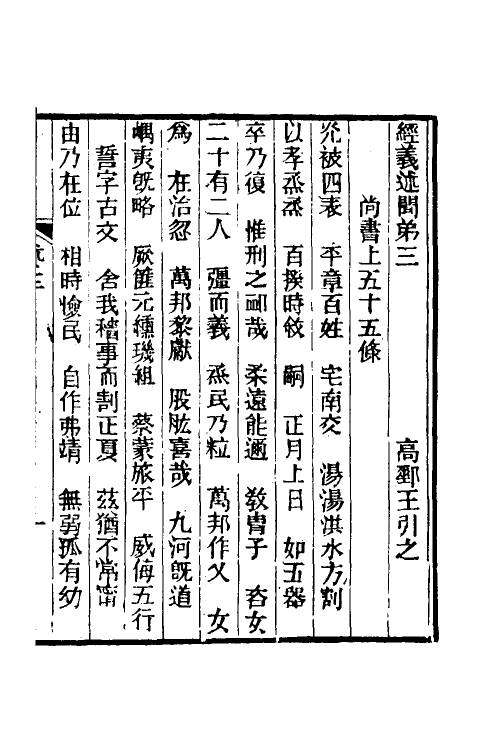 經義述聞弟三　　　　　　高郵王引之
尚書上五十五條
光被四表　平章百姓　宅南交　湯湯洪水方割
以孝烝烝　百揆時敘　嗣　正月上日　如五器
卒乃復　惟刑之卹哉　柔遠能邇　敎胄子　咨女
二十有二人　彊而義　烝民乃粒　萬邦作乂　女
爲　在治忽　萬邦黎獻　股肱喜哉　九河旣道
嵎夷旣略　厥篚元纁璣組　蔡蒙旅平　威侮五行
誓字古文　舍我穡事而割正夏　茲猶不常甯
由乃在位　相時憸民　自作弗靖　無弱孤有幼